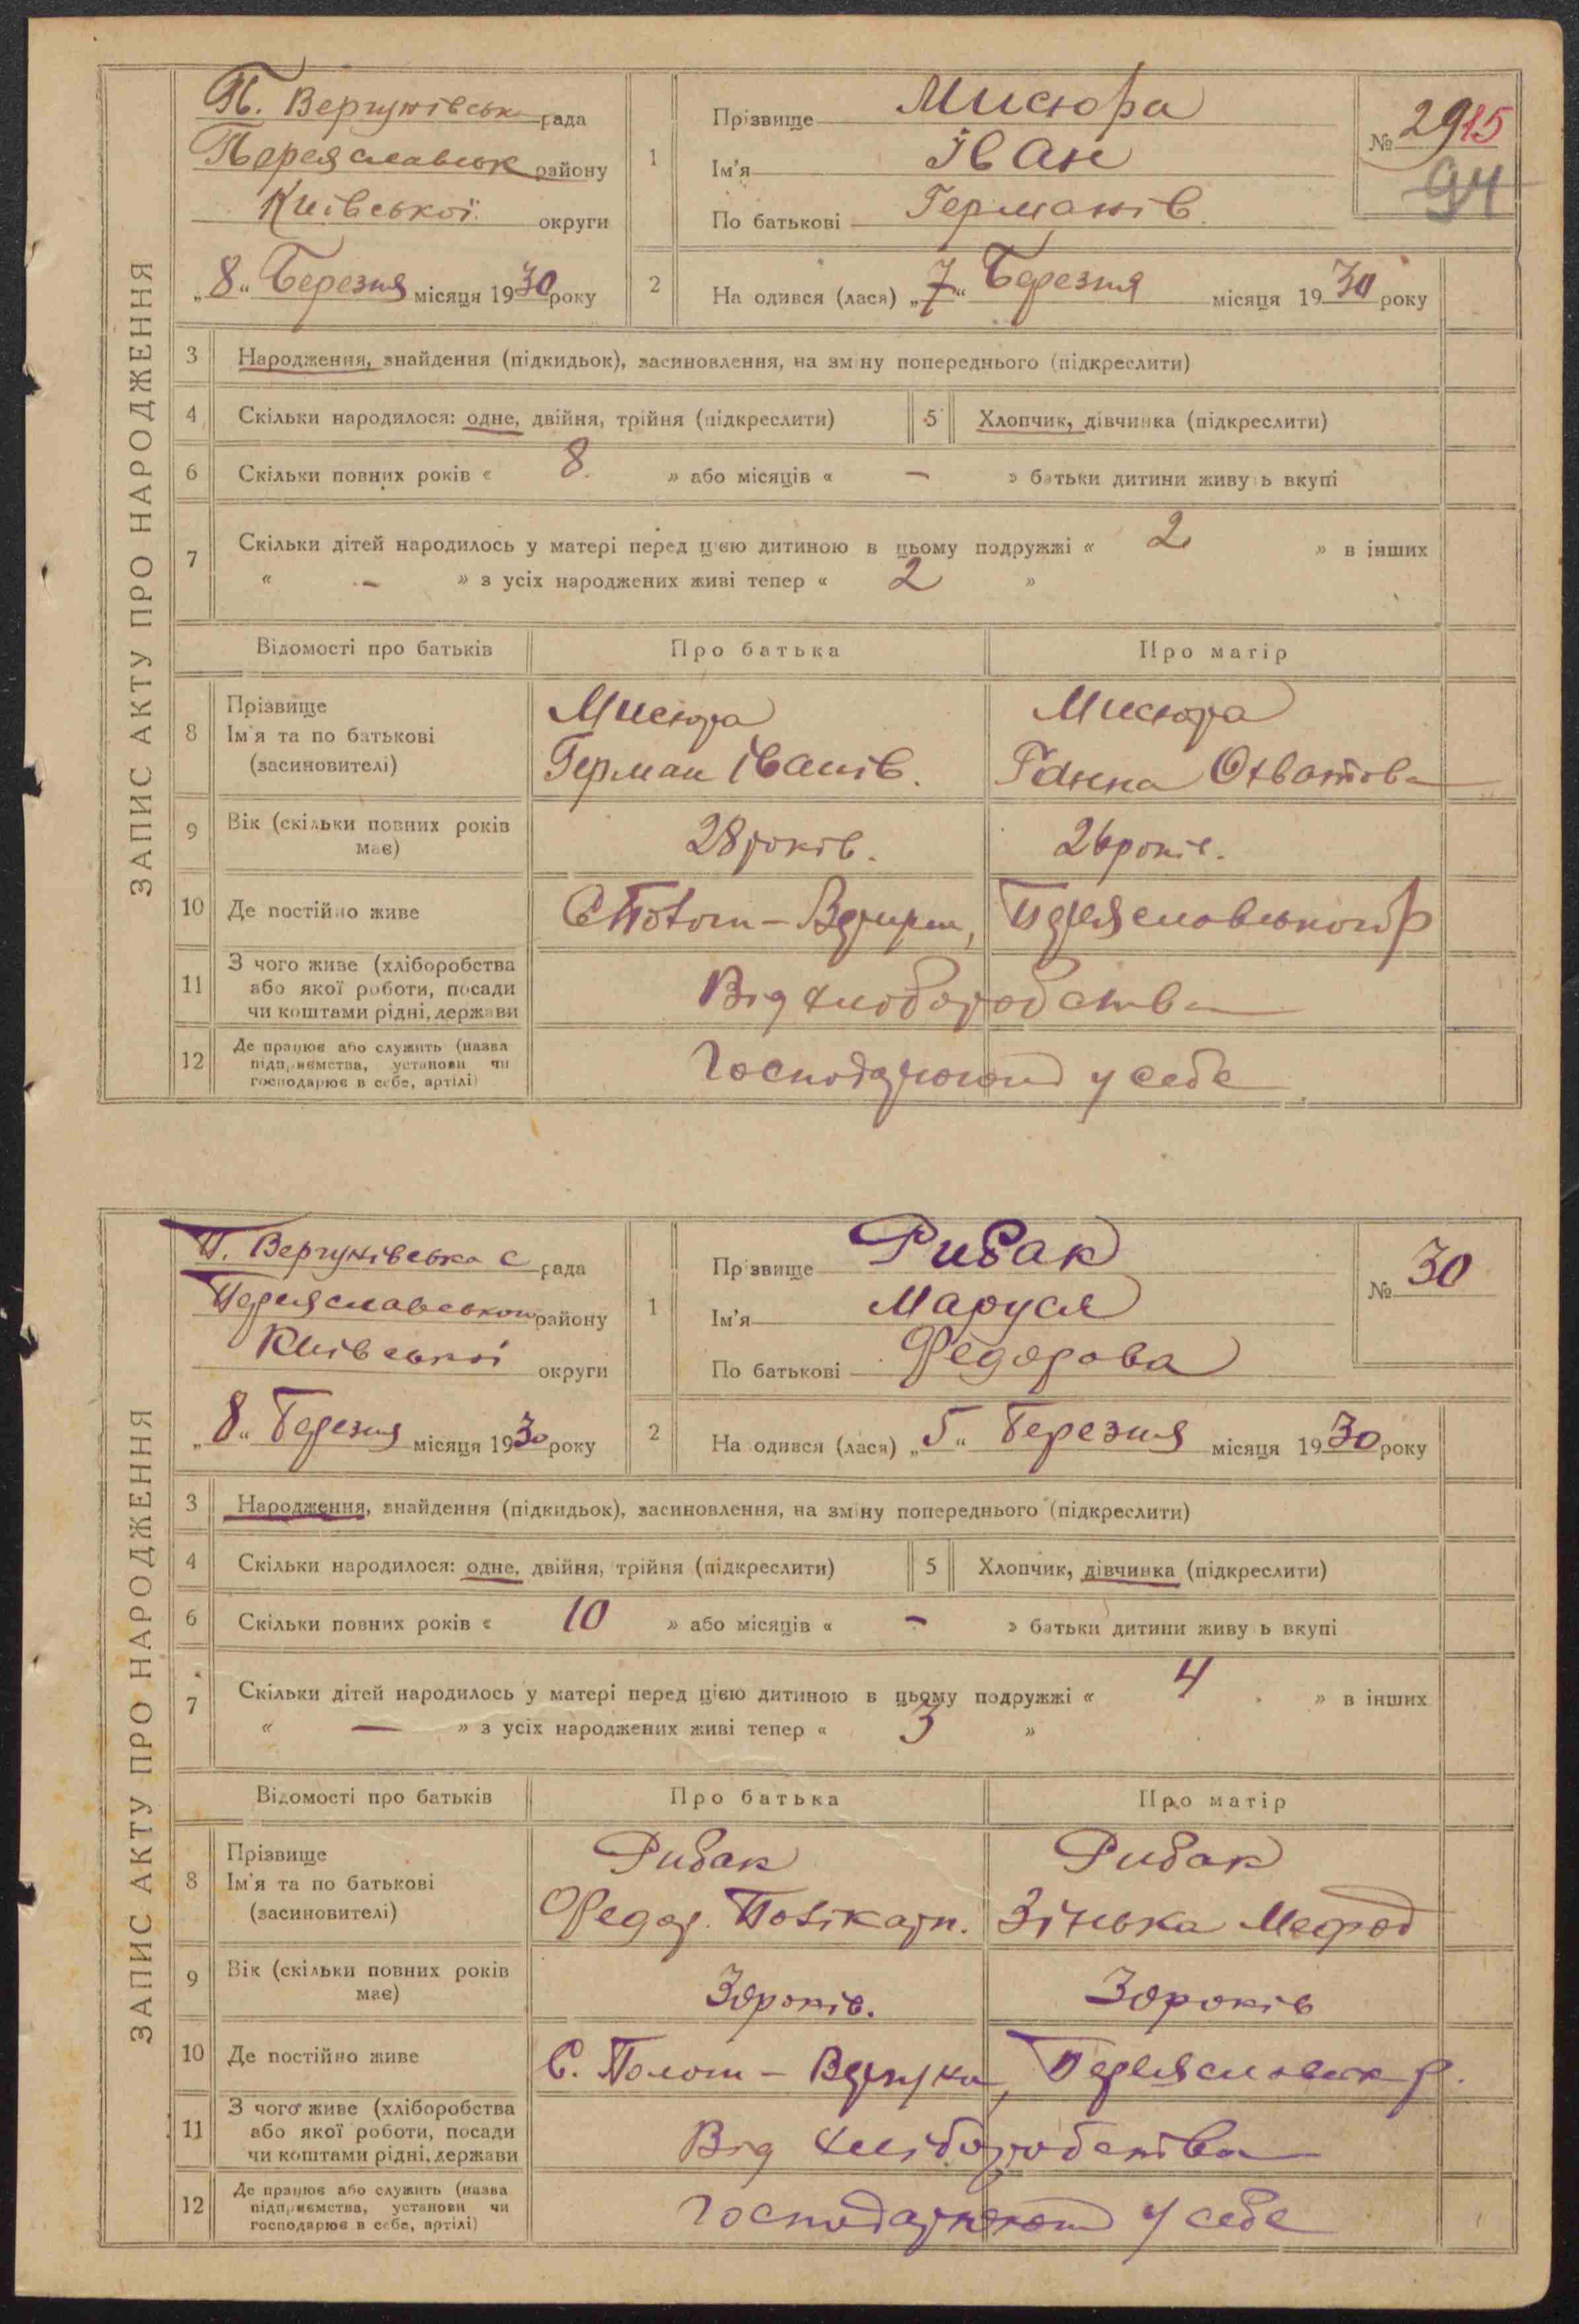 ЗАПИС АКТУ ПРО НАРОДЖЕННЯ
П. Вергунівська рада
Переяславськ району
Київської округи
„8“ Березня місяця 1930 року
1
Прізвище Мисюра
Ім'я Іван
По батькові Германів
№ 29 15
94
2
На одився (лася) „7“ Березня місяця 1930 року
3 Народження, знайдення (підкидьок), засиновлення, на зміну попереднього (підкреслити)
4 Скільки народилося: одне, двійня, трійня (підкреслити) 5 Хлопчик, дівчинка (підкреслити)
6 Скільки повних років « 8. » або місяців « – » батьки дитини живуть вкупі
7 Скільки дітей народилось у матері перед цією дитиною в цьому подружжі « 2 » в інших
« – » з усіх народжених живі тепер « 2 »
Відомості про батьків Про батька Про матір
8 Прізвище Мисюра Мисюра
Ім'я та по батькові Герман Іванів. Ганна
(засиновителі)
9 Вік (скільки повних років має) 28 років. 26 років.
10 Де постійно живе
11 З чого живе (хліборобства
або якої роботи, посади Від хліборобства
чи коштами рідні, держави
12 Де працює або служить (назва
підприємства, установи чи Господарюють у себе
господарює в себе, артілі)
ЗАПИС АКТУ ПРО НАРОДЖЕННЯ
П. Вергунівська с рада
Переяславського району
Київської округи
„8“ Березня місяця 1930 року
1
Прізвище Рибак
Ім'я Маруся
По батькові Федорова
№ 30
2
На одився (лася) „5“ Березня місяця 1930 року
3 Народження, знайдення (підкидьок), засиновлення, на зміну попереднього (підкреслити)
4 Скільки народилося: одне, двійня, трійня (підкреслити) 5 Хлопчик, дівчинка (підкреслити)
6 Скільки повних років « 10 » або місяців « – » батьки дитини живуть вкупі
7 Скільки дітей народилось у матері перед цією дитиною в цьому подружжі « 4 » в інших
« – » з усіх народжених живі тепер « 3 »
Відомості про батьків Про батька Про матір
8 Прізвище Рибак Рибак
Ім'я та по батькові Федор. Полікарп. Зінька
(засиновителі)
9 Вік (скільки повних років має) 30 років. 30 років
10 Де постійно живе С. Полог – Вергуна, Переяславськ р.
11 З чого живе (хліборобства
або якої роботи, посади Від хліборобства
чи коштами рідні, держави
12 Де працює або служить (назва
підприємства, установи чи Господарюють у себе
господарює в себе, артілі)